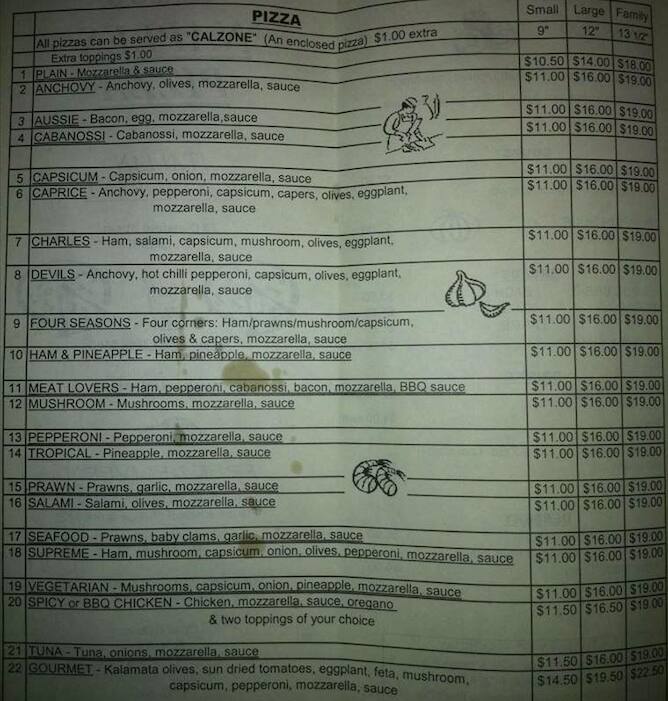 PIZZA Small Large Family
All pizzas can be served as "CALZONE" (An enclosed pizza) $1.00 extra 9" 12" 13 1/2"
Extra toppings $1.00
1 PLAIN - Mozzarella & sauce $10.50 $14.00 $18.00
2 ANCHOVY - Anchovy, olives, mozzarella, sauce $11.00 $16.00 $19.00
3 AUSSIE - Bacon, egg, mozzarella,sauce $11.00 $16.00 $19.00
4 CABANOSSI - Cabanossi, mozzarella, sauce $11.00 $16.00 $19.00
5 CAPSICUM - Capsicum, onion, mozzarella, sauce $11.00 $16.00 $19.00
6 CAPRICE - Anchovy, pepperoni, capsicum, capers, olives, eggplant, $11.00 $16.00 $19.00
mozzarella, sauce
7 CHARLES - Ham, salami, capsicum, mushroom, olives, eggplant, $11.00 $16.00 $19.00
mozzarella, sauce
8 DEVILS - Anchovy, hot chilli pepperoni, capsicum, olives, eggplant, $11.00 $16.00 $19.00
mozzarella, sauce
9 FOUR SEASONS - Four corners: Ham/prawns/mushroom/capsicum, $11.00 $16.00 $19.00
olives & capers, mozzarella, sauce
10 HAM & PINEAPPLE - Ham, pineapple, mozzarella, sauce $11.00 $16.00 $19.00
11 MEAT LOVERS - Ham, pepperoni, cabanossi, bacon, mozzarella, BBQ sauce $11.00 $16.00 $19.00
12 MUSHROOM - Mushrooms, mozzarella, sauce $11.00 $16.00 $19.00
13 PEPPERONI - Pepperoni, mozzarella, sauce $11.00 $16.00 $19.00
14 TROPICAL - Pineapple, mozzarella, sauce $11.00 $16.00 $19.00
15 PRAWN - Prawns, garlic, mozzarella, sauce $11.00 $16.00 $19.00
16 SALAMI - Salami, olives, mozzarella, sauce $11.00 $16.00 $19.00
17 SEAFOOD - Prawns, baby clams, garlic, mozzarella, sauce $11.00 $16.00 $19.00
18 SUPREME - Ham, mushroom, capsicum, onion, olives, pepperoni, mozzarella, sauce $11.00 $16.00 $19.00
19 VEGETARIAN - Mushrooms, capsicum, onion, pineapple, mozzarella, sauce $11.00 $16.00 $19.00
20 SPICY or BBQ CHICKEN - Chicken, mozzarella, sauce, oregano $11.50 $16.50 $19.00
& two toppings of your choice
21 TUNA - Tuna, onions, mozzarella, sauce $11.50 $16.00 $19.00
22 GOURMET - Kalamata olives, sun dried tomatoes, eggplant, feta, mushroom, $14.50 $19.50 $22.50
capsicum, pepperoni, mozzarella, sauce